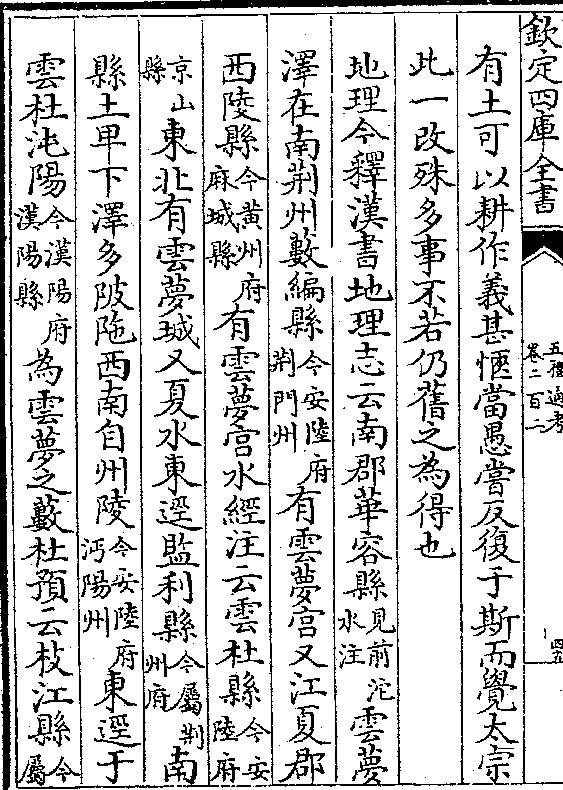 欽定四庫全書
五禮通考
卷二百二
四五
有土可以耕作義甚愜當愚嘗反復于斯而覺太宗
此一改殊多事不若仍舊之為得也
地理今釋漢書地理志云南郡華容縣見前沱水注雲夢
澤在南荆州藪編縣今安陸府荆門州有雲夢宫又江夏郡
西陵縣今黄州府麻城縣有雲夢宫水經注云雲杜縣今安陸府
京山縣東北有雲夢城又夏水東逕監利縣今屬荆州府南
縣土卑下澤多陂陁西南自州陵今安陸府沔陽州東逕于
雲杜沌陽今漢陽府漢陽縣為雲夢之藪杜預云枝江縣今屬